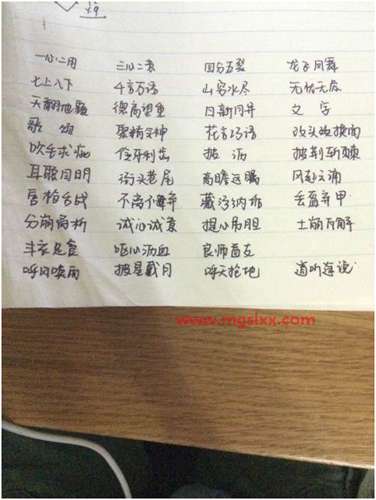 一心二用 三心二意 四分五裂 龙飞凤舞
七上八下 千言万语 山穷水尽 无忧无虑
天翻地覆 德高望重 日新月异 文字
歌颂 聚精会神 花言巧语 改头换面
吹毛求疵 伶牙利齿 披沥 披荆斩棘
耳聪目明 街头巷尾 高瞻远瞩 风起云涌
唇枪舌战 不屑 藏污纳垢 丢盔弃甲
分崩离析 诚心诚意 提心吊胆 土崩瓦解
丰衣足食 呕心沥血 良师益友
呼风唤雨 披星戴月 呼天抢地 道听途说
www.mgslxx.com